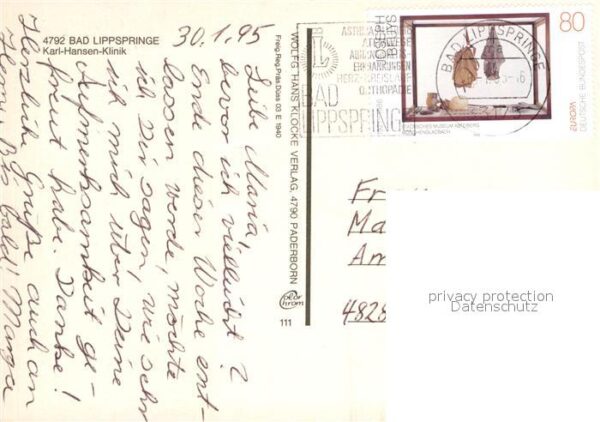 4792 BAD LIPPSPRINGE
Karl-Hansen-Klinik
30.1.95
Liebe Maria!
Bevor ich vielleicht
Ende dieser Woche ent-
lassen werde, möchte
ich Dir sagen, wie sehr
ich mich über Deine
Aufmerksamkeit ge-
freut habe. Danke!
Herzliche Grüße auch an
Bis bald! Marga
WOLFG. HANS KLOCKE VERLAG, 4790 PADERBORN
Freig. Reg. Präs. Düss. 03 E 1940
color chrom
111
ASTHMA
ATEMWEGE
ERKRANKUNGEN
HERZ-KREISLAUF
ORTHOPÄDIE
BAD
LIPPSPRINGE
BAD LIPPSPRINGE
80
DEUTSCHE BUNDESPOST
STÄDTISCHES MUSEUM ABTEIBERG
MÖNCHENGLADBACH
Ma
Am
4828
privacy protection
Datenschutz